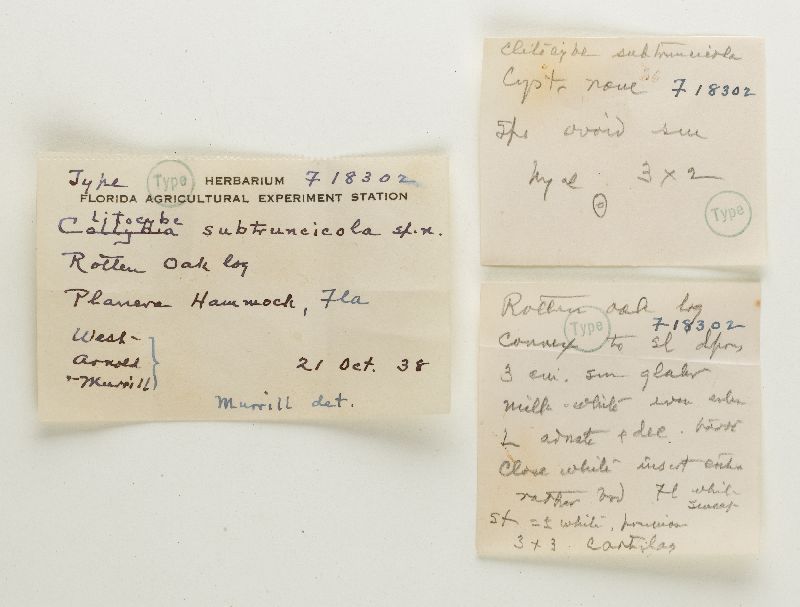 Type Type HERBARIUM F 18302
FLORIDA AGRICULTURAL EXPERIMENT STATION
litocybe
Collybia subtruncicola sp.n.
Rotten Oak log
Planera Hammock, Fla
West-
Arnold
+ Murrill
21 Oct. 38
Murrill det.
Clitocybe subtruncicola
Cyst. none F 18302
Sps ovoid sm
hyal 3 x 2
Type
Rotten oak log
Type F 18302
Convex to sl dprs
3 cm. sm glabr
milk-white even
L adnate + dec.
Close white insert
rather brd Fl white
St = ± white, pruinose
3 x 3 cartilag